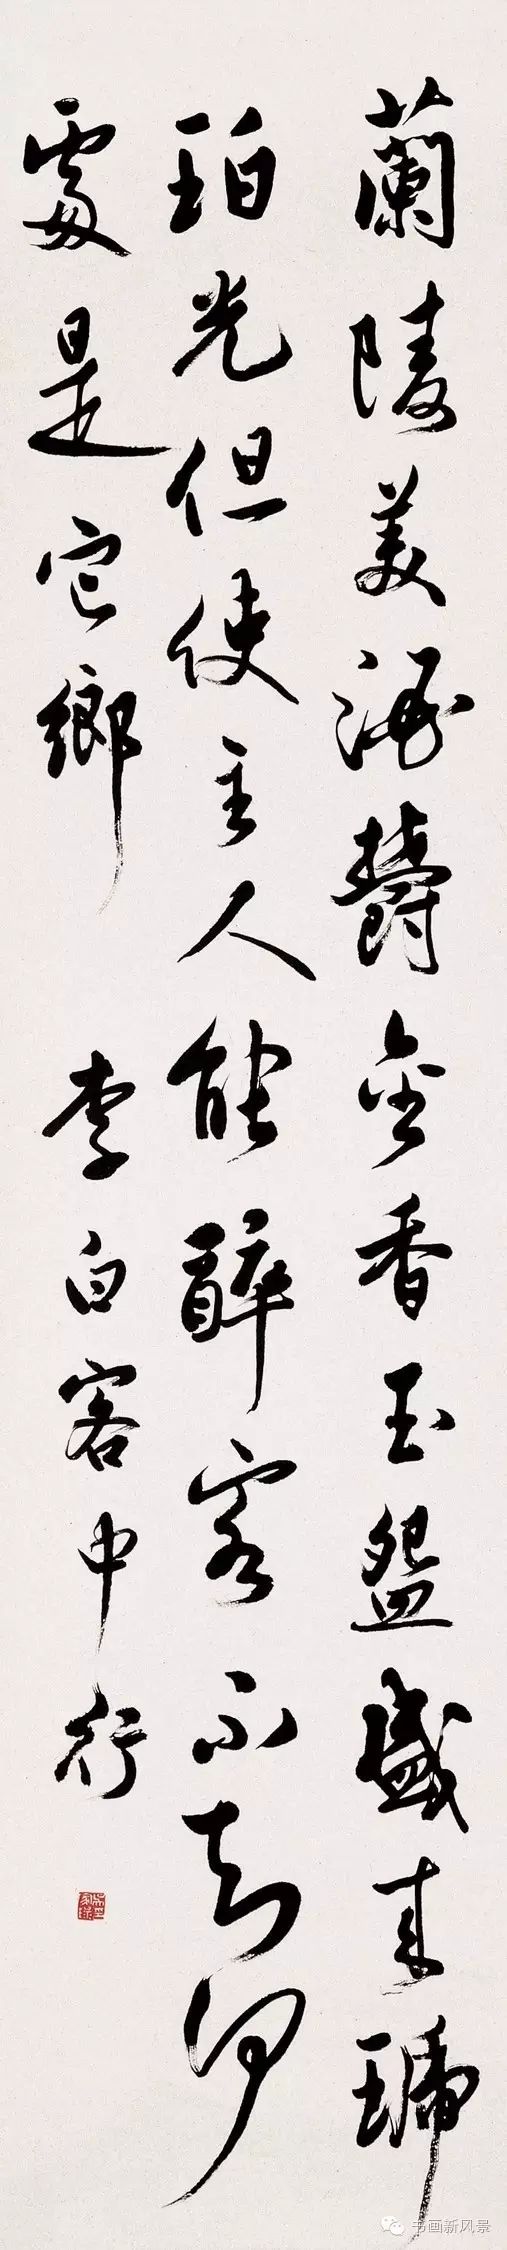 蘭陵美酒欝金香玉盌盛来琥
珀光但使主人能醉客不知何
處是它鄉 李白客中行
书画新风景